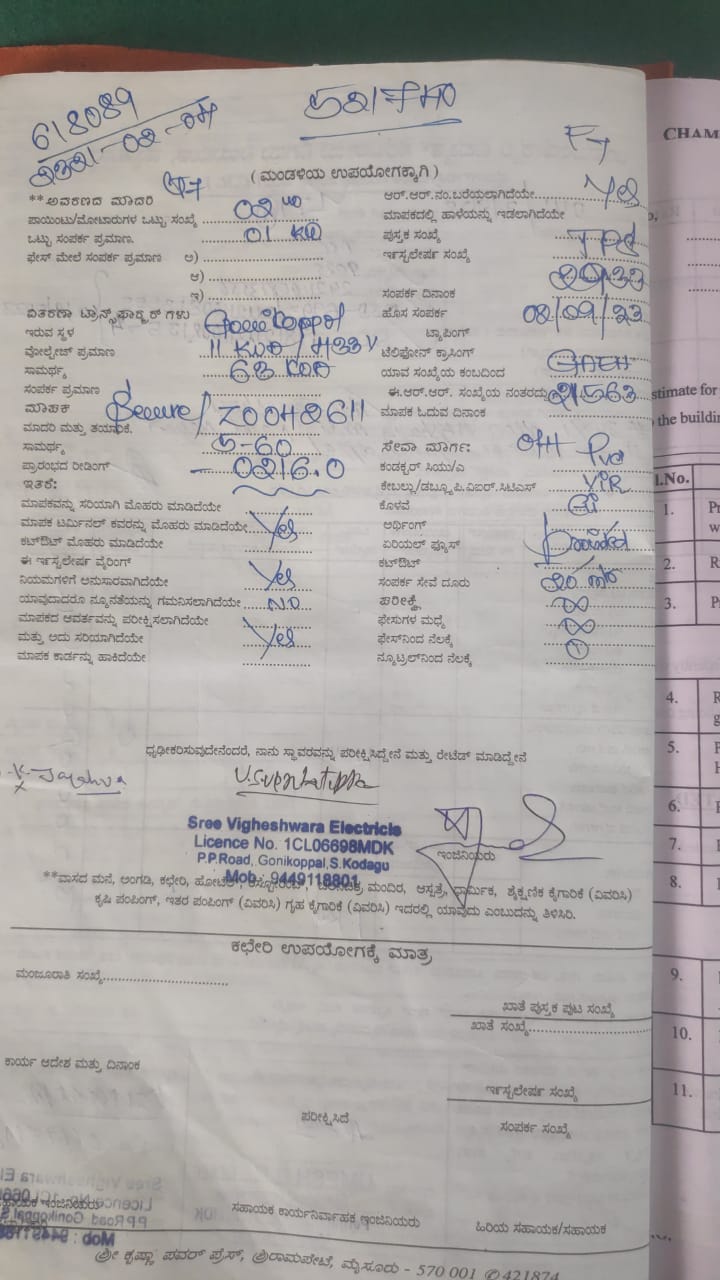 618089
CHAM
( ಮಂಡಳಿಯ ಉಪಯೋಗಕ್ಕಾಗಿ )
**ಅವರಣದ ಮಾದರಿ
ಆರ್.ಆರ್.ನಂ.ಬರೆಯಲಾಗಿದೆಯೇ Yes
ಪಾಯಿಂಟು/ಮೋಟಾರುಗಳ ಒಟ್ಟು ಸಂಖ್ಯೆ 02
ಮಾಪಕದಲ್ಲಿ ಹಾಳೆಯನ್ನು ಇಡಲಾಗಿದೆಯೇ
ಒಟ್ಟು ಸಂಪರ್ಕ ಪ್ರಮಾಣ. 01 KW
ಪುಸ್ತಕ ಸಂಖ್ಯೆ
ಫೇಸ್ ಮೇಲೆ ಸಂಪರ್ಕ ಪ್ರಮಾಣ ಅ)
ಇನ್ಸ್ಟಲೇಷನ್ ಸಂಖ್ಯೆ
ಆ)
ಇ)
ಸಂಪರ್ಕ ದಿನಾಂಕ
ವಿತರಣಾ ಟ್ರಾನ್ಸ್‌ಫಾರ್ಮರ್‌ಗಳು
ಹೊಸ ಸಂಪರ್ಕ 08/09/23
ಇರುವ ಸ್ಥಳ Gonikoppal
ಟ್ಯಾಪಿಂಗ್
ವೋಲ್ಟೇಜ್ ಪ್ರಮಾಣ
ಟೆಲಿಫೋನ್ ಕ್ರಾಸಿಂಗ್
ಸಾಮರ್ಥ್ಯ 63
ಯಾವ ಸಂಖ್ಯೆಯ ಕಂಬದಿಂದ
ಸಂಪರ್ಕ ಪ್ರಮಾಣ
ಈ.ಆರ್.ಆರ್. ಸಂಖ್ಯೆಯ ನಂತರದ್ದು 21563
stimate for
ಮಾಪಕ Secure/ Z0048611
ಮಾಪಕ ಓದುವ ದಿನಾಂಕ
the building
ಮಾದರಿ ಮತ್ತು ತಯಾರಿಕೆ.
ಸಾಮರ್ಥ್ಯ 5-60
ಸೇವಾ ಮಾರ್ಗ:
ಪ್ರಾರಂಭದ ರೀಡಿಂಗ್ 0216.0
ಕಂಡಕ್ಟರ್ ಸಿಯು/ಎ
ಇತರೆ:
ಕೇಬಲ್ಲು/ಡಬ್ಲ್ಯೂ.ಪಿ.ವಿಐರ್.ಸಿಟಿಎಸ್ VIR
I.No.
ಮಾಪಕವನ್ನು ಸರಿಯಾಗಿ ಮೊಹರು ಮಾಡಿದೆಯೇ
ಕೊಳವೆ GI
1.
ಮಾಪಕ ಟರ್ಮಿನಲ್ ಕವರನ್ನು ಮೊಹರು ಮಾಡಿದೆಯೇ Yes
ಅರ್ಥಿಂಗ್
ಕಟ್‌ಔಟ್ ಮೊಹರು ಮಾಡಿದೆಯೇ
ಏರಿಯಲ್ ಫ್ಯೂಸ್ provided
ಈ ಇನ್ಸ್ಟಲೇಷನ್ ವೈರಿಂಗ್
ಕಟ್‌ಔಟ್
2.
ನಿಯಮಗಳಿಗೆ ಅನುಸಾರವಾಗಿದೆಯೇ Yes
ಸಂಪರ್ಕ ಸೇವೆ ದೂರು
ಯಾವುದಾದರೂ ನ್ಯೂನತೆಯನ್ನು ಗಮನಿಸಲಾಗಿದೆಯೇ No
ಪರೀಕ್ಷೆ ∞
3.
ಮಾಪಕದ ಆವರ್ತವನ್ನು ಪರೀಕ್ಷಿಸಲಾಗಿದೆಯೇ
ಫೇಸುಗಳ ಮಧ್ಯೆ ∞
ಮತ್ತು ಅದು ಸರಿಯಾಗಿದೆಯೇ Yes
ಫೇಸ್‌ನಿಂದ ನೆಲಕ್ಕೆ
ಮಾಪಕ ಕಾರ್ಡನ್ನು ಹಾಕಿದೆಯೇ
ನ್ಯೂಟ್ರಲ್‌ನಿಂದ ನೆಲಕ್ಕೆ
4.
ಧೃಢೀಕರಿಸುವುದೇನೆಂದರೆ, ನಾನು ಸ್ಥಾವರವನ್ನು ಪರೀಕ್ಷಿಸಿದ್ದೇನೆ ಮತ್ತು ರೇಟೆಡ್ ಮಾಡಿದ್ದೇನೆ
5.
6.
Sree Vigheshwara Electricls
Licence No. 1CL06698MDK
P.P.Road, Gonikoppal,S.Kodagu
Mob : 9449118801
ಇಂಜಿನಿಯರು
7.
8.
**ವಾಸದ ಮನೆ, ಅಂಗಡಿ, ಕಛೇರಿ, ಮಂದಿರ, ಆಸ್ಪತ್ರೆ, ಧಾರ್ಮಿಕ, ಶೈಕ್ಷಣಿಕ ಕೈಗಾರಿಕೆ (ವಿವರಿಸಿ)
ಕೃಷಿ ಪಂಪಿಂಗ್, ಇತರ ಪಂಪಿಂಗ್ (ವಿವರಿಸಿ) ಗೃಹ ಕೈಗಾರಿಕೆ (ವಿವರಿಸಿ) ಇದರಲ್ಲಿ ಯಾವುದು ಎಂಬುದನ್ನು ತಿಳಿಸಿರಿ.
ಕಛೇರಿ ಉಪಯೋಗಕ್ಕೆ ಮಾತ್ರ
ಮಂಜೂರಾತಿ ಸಂಖ್ಯೆ
9.
ಖಾತೆ ಪುಸ್ತಕ ಪುಟ ಸಂಖ್ಯೆ
ಖಾತೆ ಸಂಖ್ಯೆ
10.
ಕಾರ್ಯ ಆದೇಶ ಮತ್ತು ದಿನಾಂಕ
ಇನ್ಸ್ಟಲೇಷನ್ ಸಂಖ್ಯೆ
11.
ಪರೀಕ್ಷಿಸಿದೆ
ಸಂಪರ್ಕ ಸಂಖ್ಯೆ
ಸಹಾಯಕ ಇಂಜಿನಿಯರು
ಸಹಾಯಕ ಕಾರ್ಯನಿರ್ವಾಹಕ ಇಂಜಿನಿಯರು
ಹಿರಿಯ ಸಹಾಯಕ/ಸಹಾಯಕ
ಶ್ರೀ ಕೃಷ್ಣಾ ಪವರ್ ಪ್ರೆಸ್, ಶ್ರೀರಾಮಪೇಟೆ, ಮೈಸೂರು - 570 001 ✆ 421874